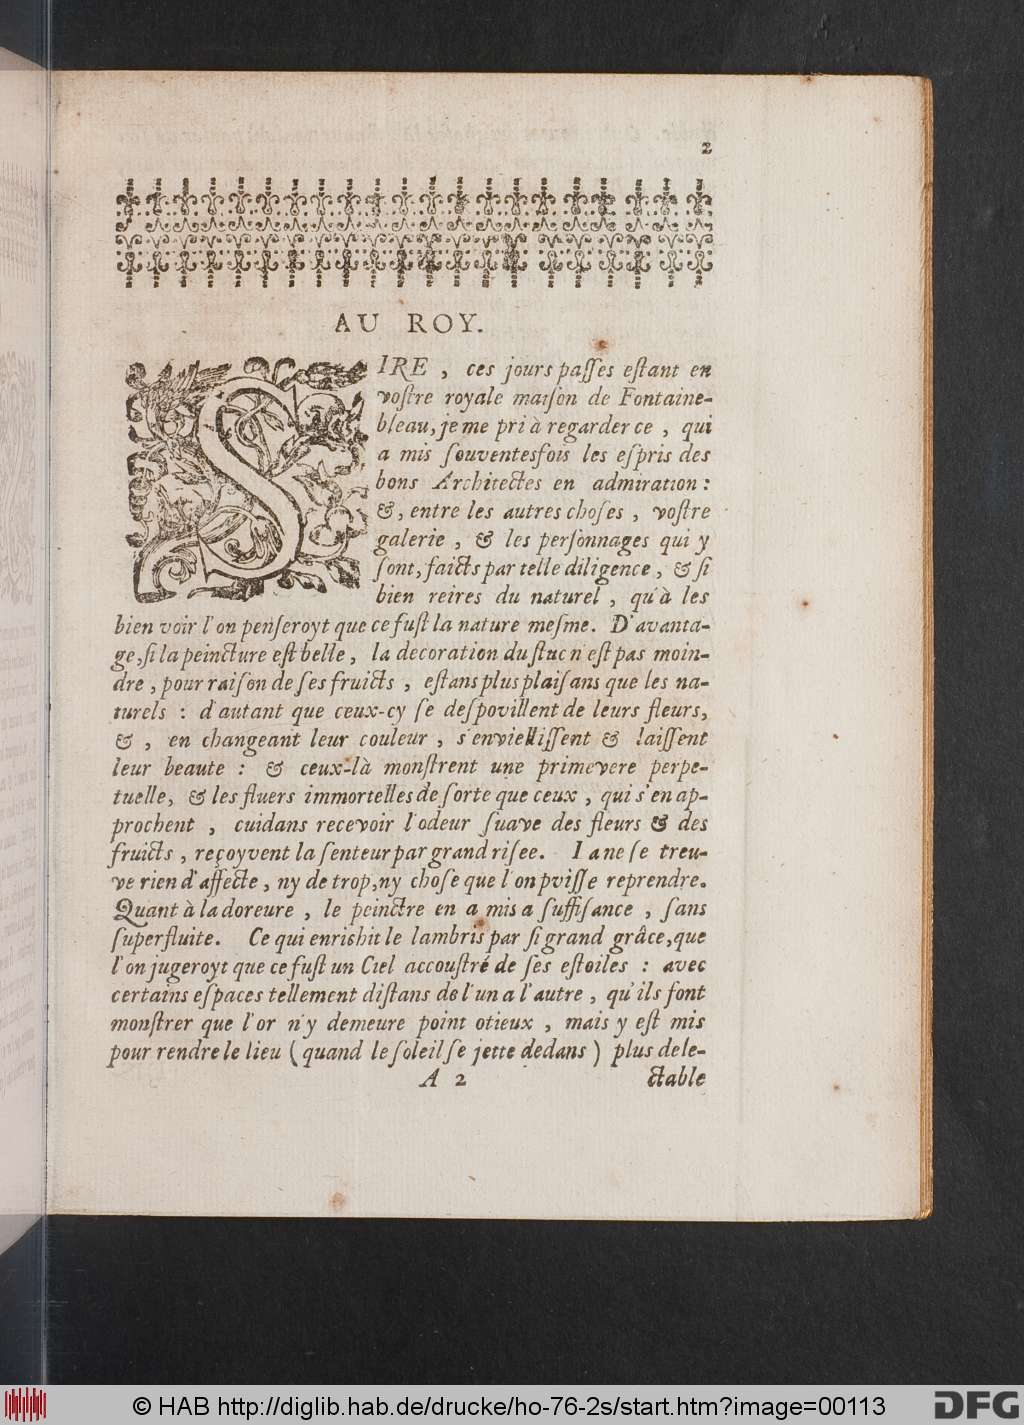 2
AU ROY.
SIRE, ces jours passes estant en
vostre royale maison de Fontaine-
bleau, je me pri à regarder ce, qui
a mis souventesfois les espris des
bons Architectes en admiration:
&, entre les autres choses, vostre
galerie, & les personnages qui y
sont, faicts par telle diligence, & si
bien reires du naturel, qu'à les
bien voir l'on penseroyt que ce fust la nature mesme. D'avanta-
ge, si la peincture est belle, la decoration du stuc n'est pas moin-
dre, pour raison de ses fruicts, estans plus plaisans que les na-
turels: d'autant que ceux-cy se despovillent de leurs fleurs,
&, en changeant leur couleur, s'enviellissent & laissent
leur beaute: & ceux-là monstrent une primevere perpe-
tuelle, & les fluers immortelles de sorte que ceux, qui s'en ap-
prochent, cuidans recevoir l'odeur suave des fleurs & des
fruicts, reçoyvent la senteur par grand risee. I a ne se treu-
ve rien d'affecte, ny de trop, ny chose que l'on pvisse reprendre.
Quant à la doreure, le peinctre en a mis a suffisance, sans
superfluite. Ce qui enrishit le lambris par si grand grâce, que
l'on jugeroyt que ce fust un Ciel accoustré de ses estoiles: avec
certains espaces tellement distans de l'un a l'autre, qu'ils font
monstrer que l'or n'y demeure point otieux, mais y est mis
pour rendre le lieu (quand le soleil se jette dedans) plus dele-
A 2 ctable
© HAB http://diglib.hab.de/drucke/ho-76-2s/start.htm?image=00113 DFG